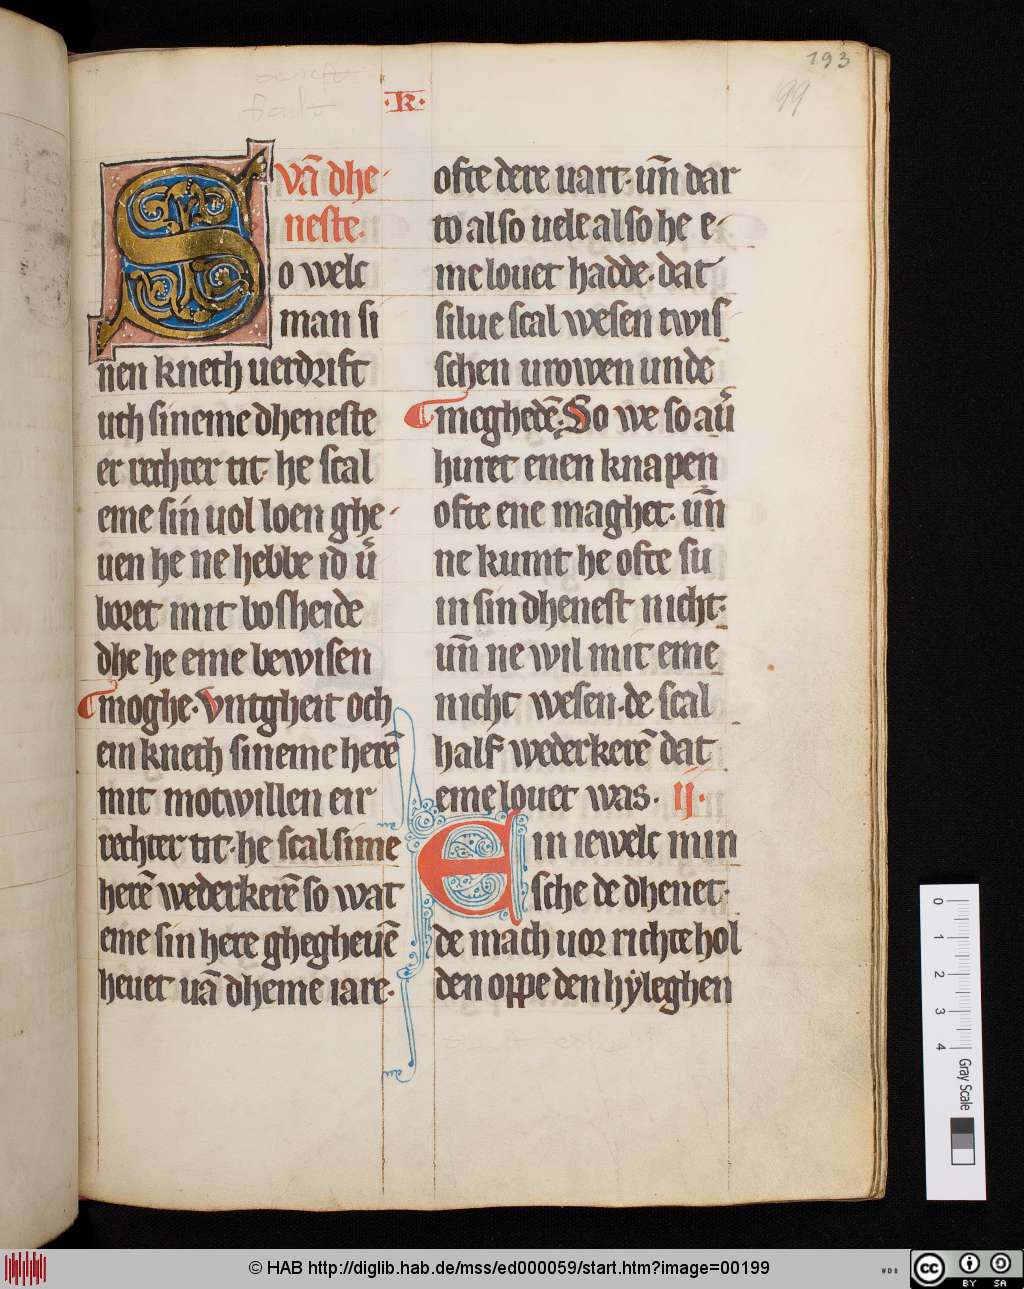 193
99
·k·
vā dhe-
neste·
So welc
man si
nen knech uerdrift
uth sineme dheneste
er rechter tit· he scal
eme sin uol loen ghe-
uen he ne hebbe id u͛
boret mit bosheide
dhe he eme bewisen
moghe· vntgheit och
ein knech sineme herē
mit motwillen eir
rechter tit· he scal sime
herē wederkerē so wat
eme sin here ghegheuē
heuet uā dheme iare·
ofte dere uart· un̄ dar
to also uele also he e-
me louet hadde· dat
silue scal wesen twis
schen urowen unde
meghedē· So we so au͛
huret enen knapen
ofte ene maghet· un̄
ne kumt he ofte su
in sin dhenest nicht·
un̄ ne wil mit eme
nicht wesen· de scal
half wederkerē dat
eme louet was· ij·
Ein iewelc min
sche de dhenet·
de mach uor richte hol
den oppe den hẏleghen
0 1 2 3 4 Gray Scale
© HAB http://diglib.hab.de/mss/ed000059/start.htm?image=00199
WDB
cc BY SA